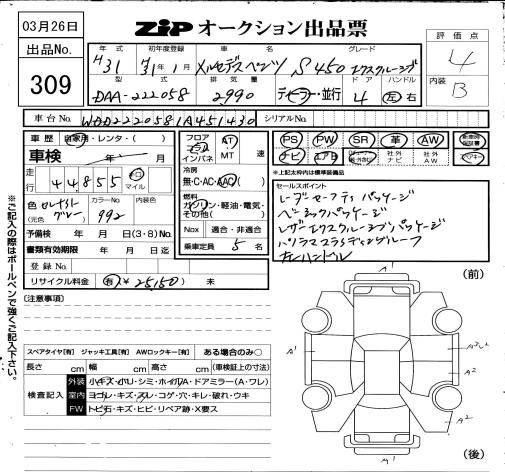 03月26日
出品No.
309
ZIP オークション出品票
評価点
4
内装
B
年式 初年度登録 車名 グレード
H31 H31年1月 メルセデスベンツ S450 エクスクルーシブ
型式 排気量 ドア ハンドル
DAA-222058 2990 ディーラー・並行 4 左 右
車台No. WDD2220581A451430 シリアルNo.
車歴 自家用・レンタ・( )
車検 年 月
走行 44855 km マイル
色 セレナイトグレー (元色) カラーNo. 992 内装色
予備検 年 月 日(3・8)No.
書類有効期限 年 月 日迄
登録No.
リサイクル料金 有(¥25,150) 未
フロア コラム インパネ AT MT 速
冷房 無・C・AC・AAC
燃料 ガソリン・軽油・電気・その他( )
Nox 適合・非適合
乗車定員 5 名
PS PW SR 革 AW
ナビ エアB 社外ナビ 社外AW
*上記太枠内は標準装備品
セールスポイント
レーダーセーフティパッケージ
ベーシックパッケージ
レザーエクスクルーシブパッケージ
パノラマスライディングルーフ
左ハンドル
※ご記入の際はボールペンで強くご記入下さい。
(注意事項)
スペアタイヤ[有] ジャッキ工具[有] AWロックキー[有] ある場合のみ○
長さ cm 幅 cm 高さ cm (車検証上の寸法)
検査記入
外装 小キズ・小リ・シミ・ホイルA・ドアミラー(A・ワレ)
室内 ヨゴレ・キズ・スレ・コゲ・穴・キレ・破れ・ウキ
FW トビ石・キズ・ヒビ・リペア跡・X要ス
(前)
A1
A1
A2
A2
A1
(後)